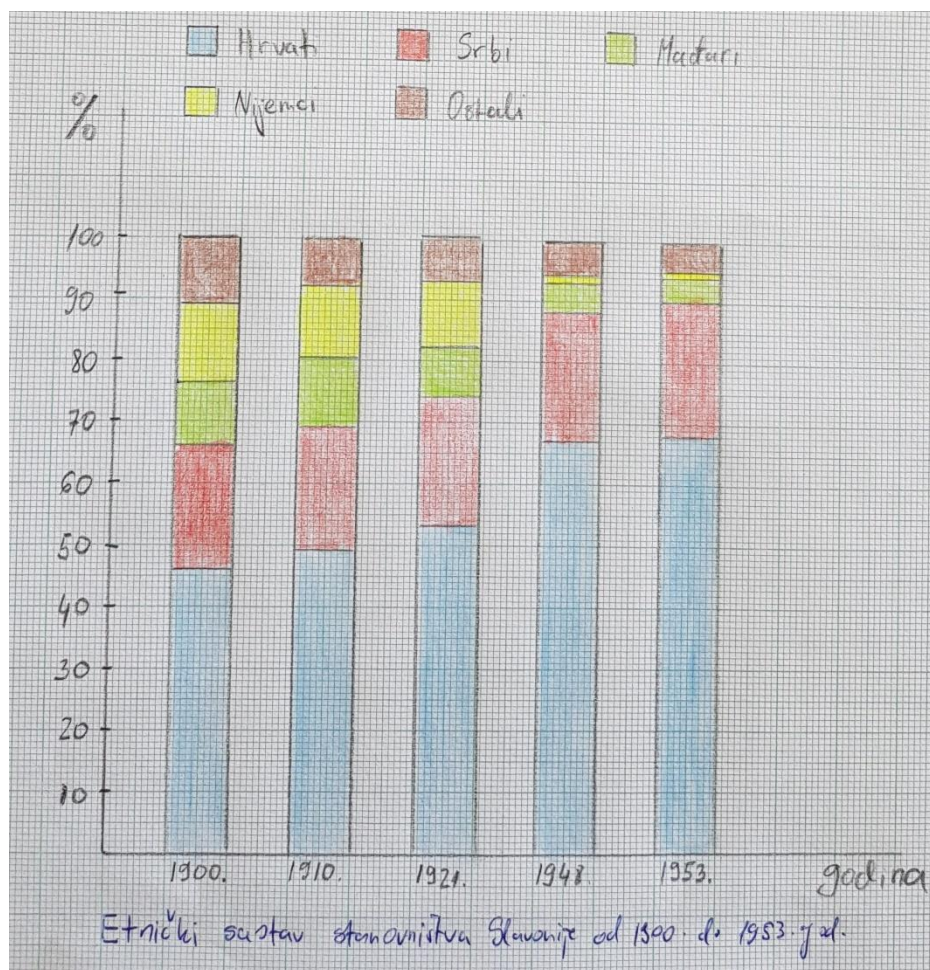 Hrvati Srbi Mađari
Nijemci Ostali
%
100
90
80
70
60
50
40
30
20
10
1900. 1910. 1921. 1948. 1953. godina
Etnički sastav stanovništva Slavonije od 1900. do 1953. god.